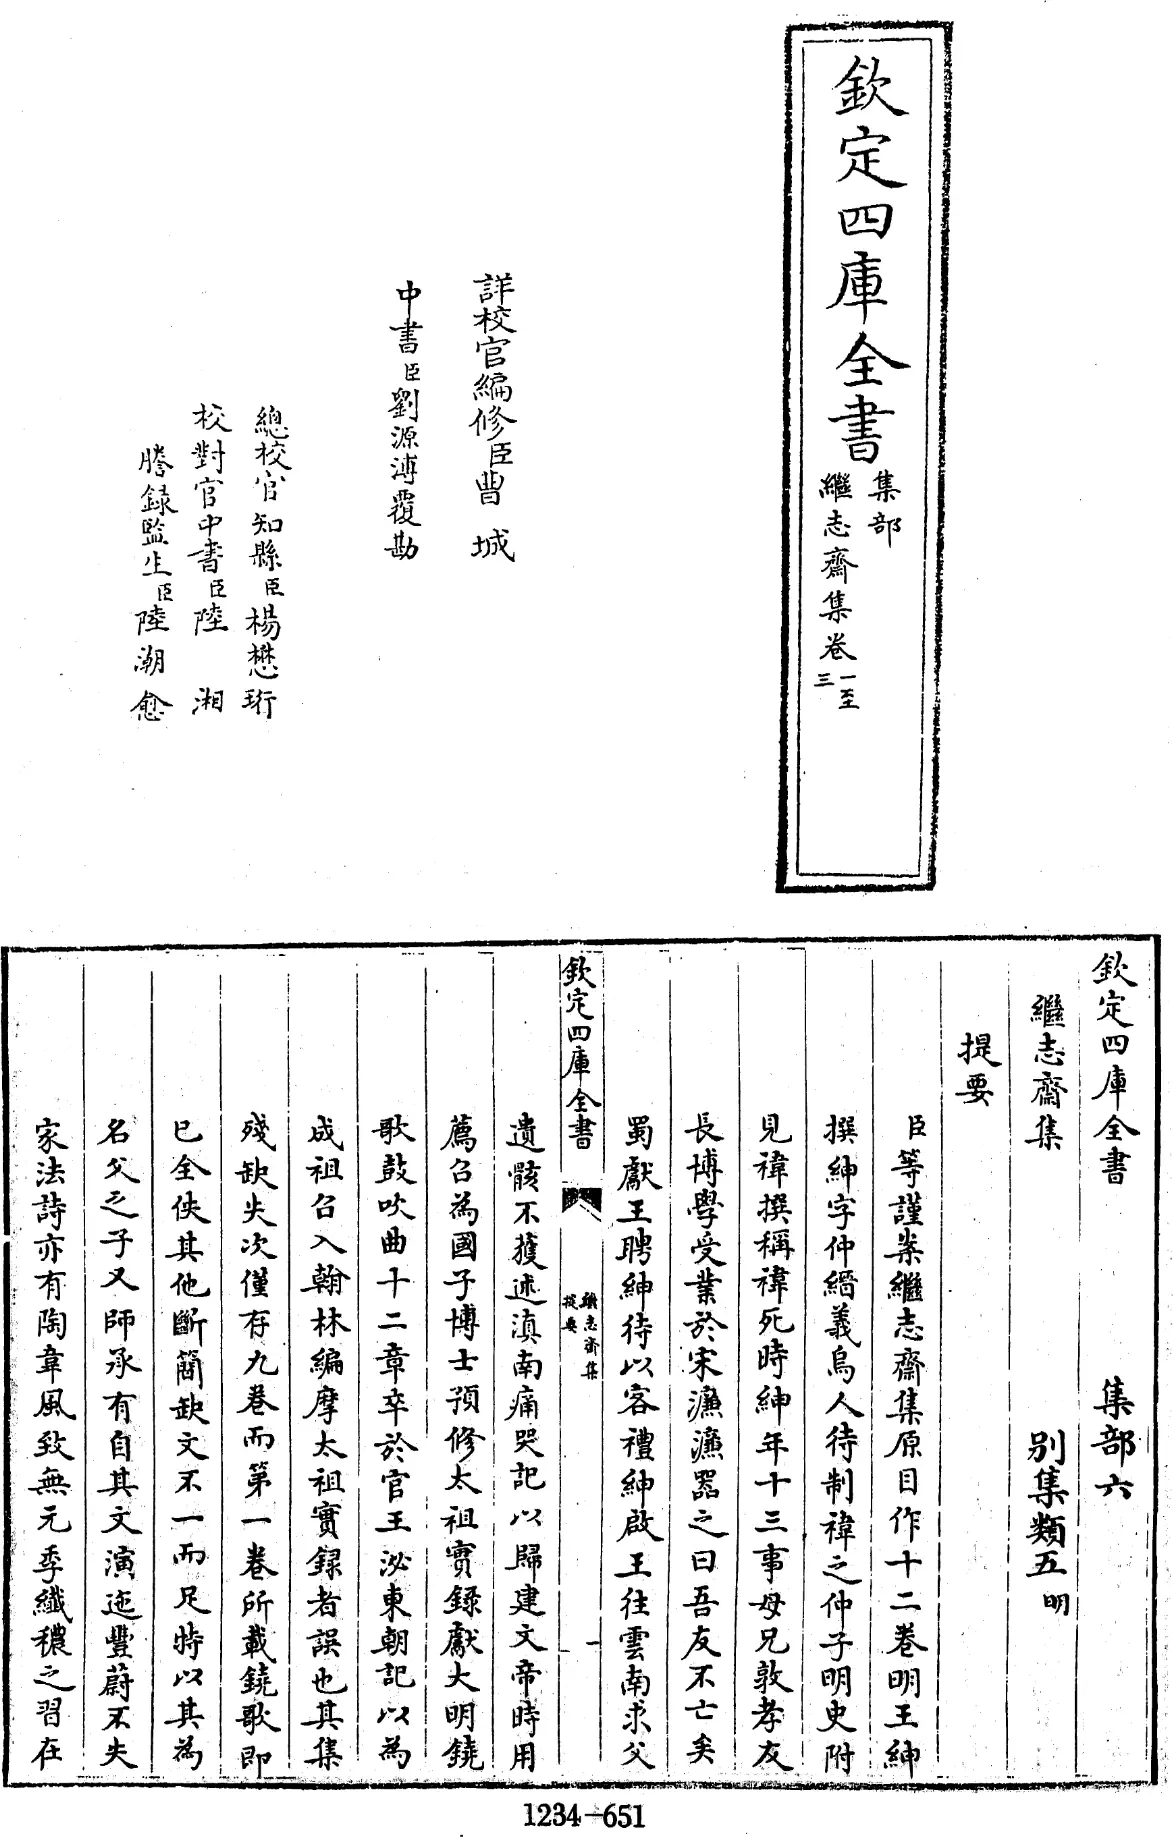 欽定四庫全書
集部
繼志齋集卷一至三
詳校官編修臣曹城
中書臣劉源溥覆勘
總校官知縣臣楊懋珩
校對官中書臣陸湘
謄錄監生臣陸潮愈
欽定四庫全書 集部六
繼志齋集 別集類五明
提要
臣等謹案繼志齋集原目作十二卷明王紳
撰紳字仲縉義烏人待制禕之仲子明史附
見禕撰稱禕死時紳年十三事母兄敦孝友
長博學受業於宋濂濂器之曰吾友不亡矣
蜀獻王聘紳待以客禮紳啟王往雲南求父
欽定四庫全書
繼志齋集
提要
一
遺骸不獲述滇南痛哭記以歸建文帝時用
薦召為國子博士預修太祖實錄獻大明鐃
歌鼓吹曲十二章卒於官王泌東朝記以為
成祖召入翰林編摩太祖實錄者誤也其集
殘缺失次僅存九卷而第一卷所載鐃歌即
已全佚其他斷簡缺文不一而足特以其為
名父之子又師承有自其文演迤豐蔚不失
家法詩亦有陶韋風致無元季纖穠之習在
1234-651